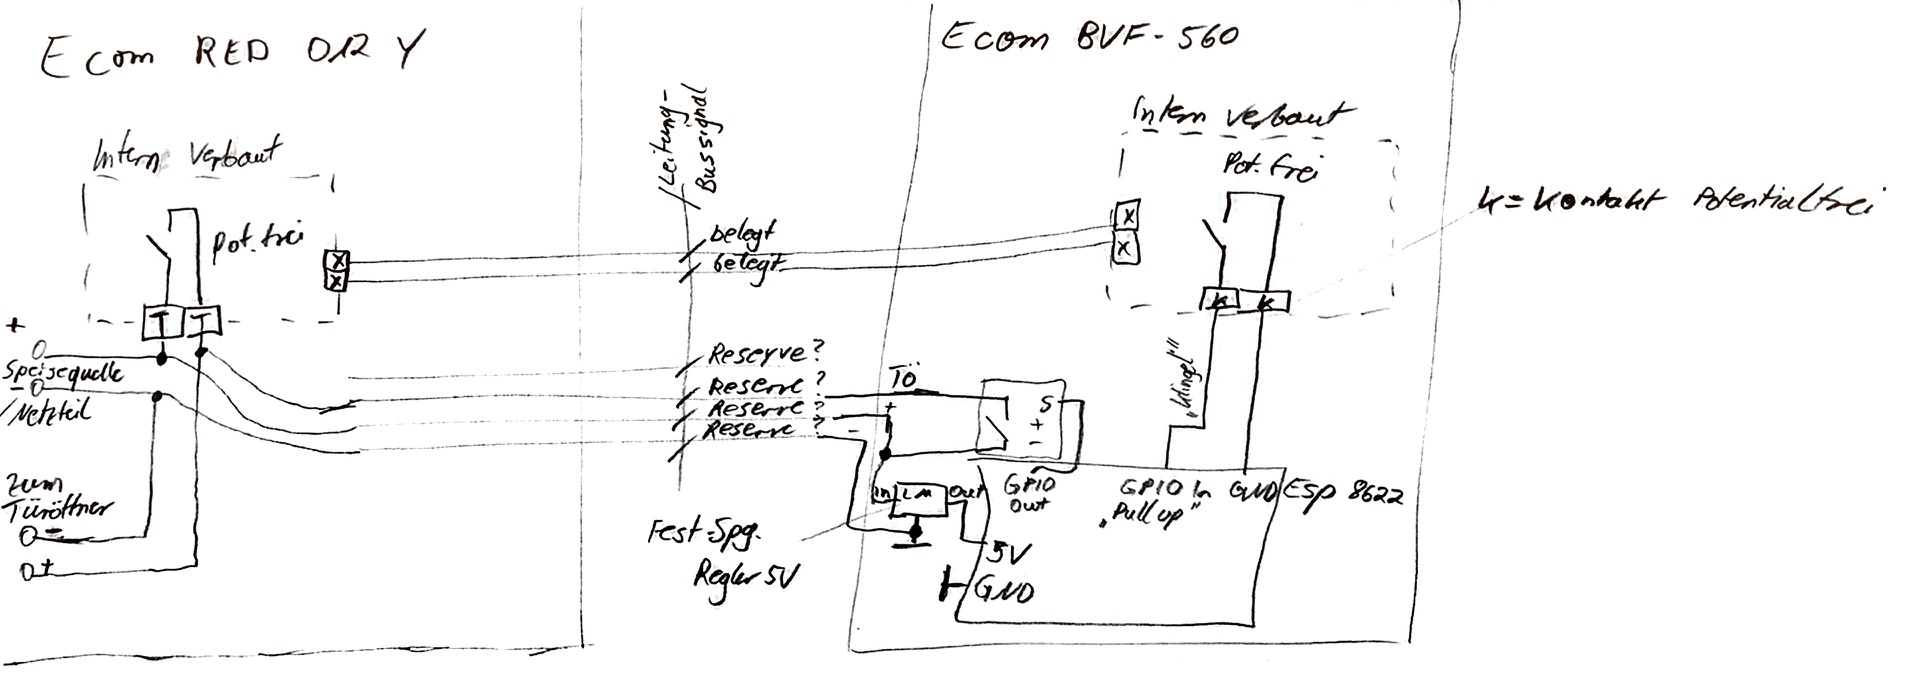 Ecom RED 012 Y
Ecom BVF-560
Intern Verbaut
Pot. frei
X
X
T T
+
Speisequelle
-
/Netzteil
Zum
Türöffner
-
+
/Leitung-
Bussignal
belegt
belegt
Reserve?
Reserve?
Reserve?
Reserve?
Intern verbaut
Pot. frei
X
X
K K
K = Kontakt Potentialfrei
"Klingel"
TÖ
+
-
S
+
-
In LM Out
GPIO
Out
GPIO In
"Pull up"
GND
Esp 8622
Fest-Spg.
Regler 5V
5V
GND